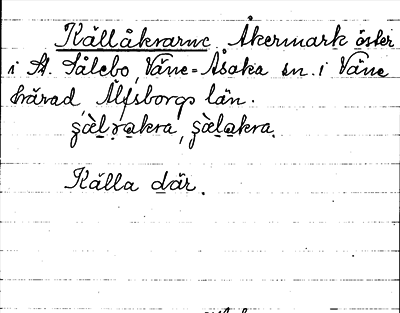 Källåkrarne Åkermark öster
i St. Sålebo, Väne-Åsaka sn. i Väne
härad, Älfsborgs län.
Källa där.